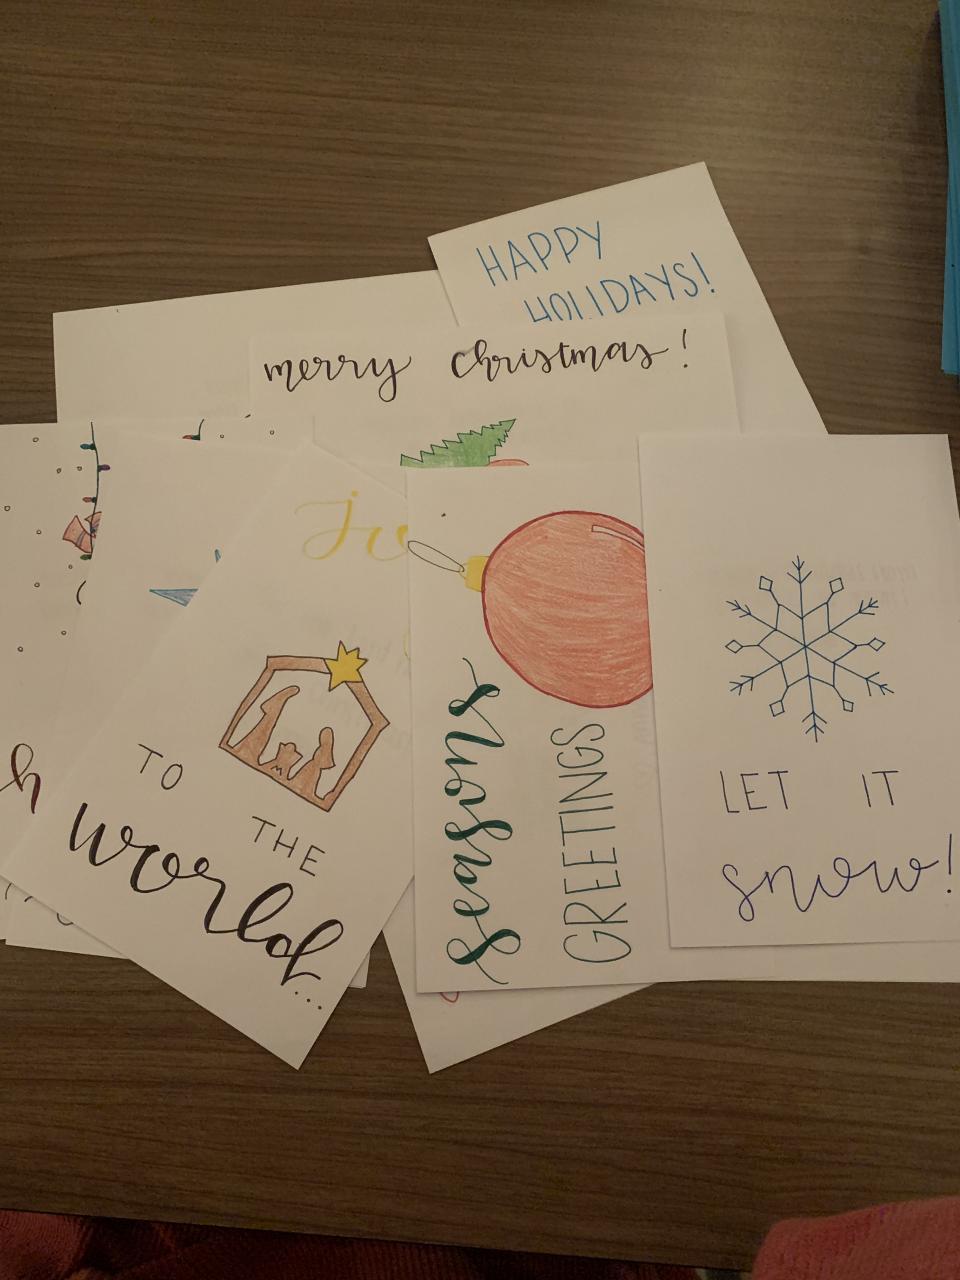 HAPPY
HOLIDAYS!
merry christmas!
TO
THE
world...
seasons
GREETINGS
LET IT
snow!